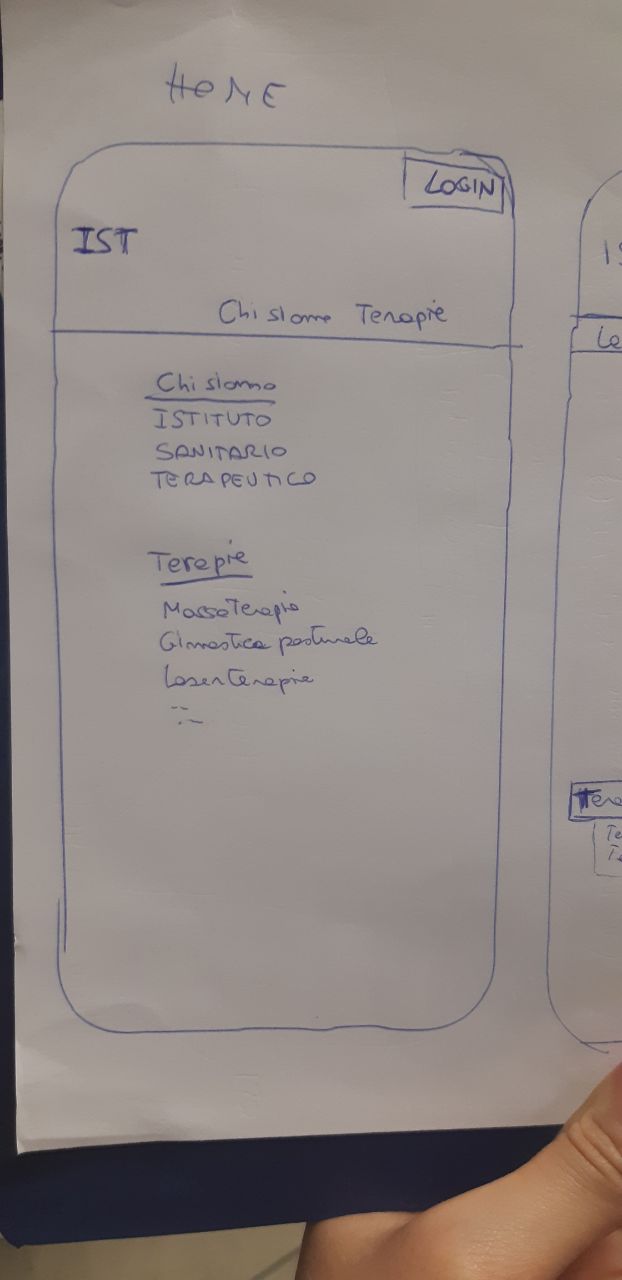 HOME
LOGIN
IST
Chi siamo Terapie
Chi siamo
ISTITUTO
SANITARIO
TERAPEUTICO
Terapie
Massoterapia
Ginnastica posturale
Laserterapia